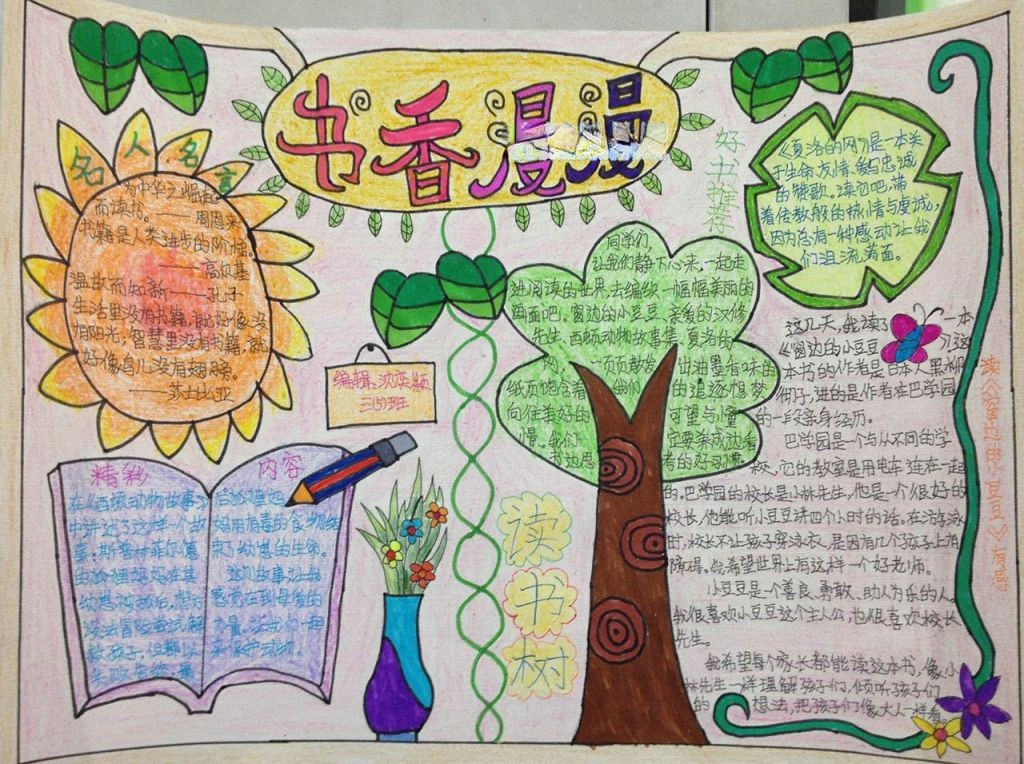 书香漫漫
名人名言
为中华之崛起
而读书。——周恩来
书籍是人类进步的阶梯。
——高尔基
温故而知新——孔子
生活里没有书籍,就好像没
有阳光;智慧里没有书籍,就
好像鸟儿没有翅膀。
——莎士比亚
编辑:沈奕颖
三(5)班
精彩内容
在《西顿动物故事》
中讲述了这样一个故
事:斯普林菲尔德
的狐狸妈妈在其
幼崽被抓后,想方
设法冒险尝试解
救孩子,但都以
后狐狸妈
妈用有毒的食物结
束了幼崽的生命。
这则故事让我
感觉到母爱的
力量。让我们一起
来保护动物。
同学们,
让我们静下心来,一起走
进阅读的世界,去编织一幅幅美丽的
画面吧!窗边的小豆豆、亲爱的汉修
先生、西顿动物故事集、夏洛的
网,一页页散发出油墨香味的
纸页饱含着我们的追逐梦想
向往美好的可望与憧
憬。我们一定要养成边看
书边思考的好习惯。
读书树
好书推荐
《夏洛的网》是一本关
于生命,友情,爱与忠诚
的赞歌。读它吧,带
着传教般的热情与虔诚,
因为总有一种感动让我
们泪流满面。
读《窗边的小豆豆》有感
这几天,我读了一本
《窗边的小豆豆》,这
本书的作者是日本人黑柳
彻子,讲的是作者在巴学园
的一段亲身经历。
巴学园是一个与众不同的学
校,它的教室是用电车连在一起
的。巴学园的校长是小林先生,他是一个很好的
校长,他能听小豆豆讲四个小时的话。在游泳
时,校长不让孩子穿泳衣,是因为几个孩子上有
障碍。我希望世界上有这样一个好老师。
小豆豆是个善良、勇敢、助人为乐的人。
我很喜欢小豆豆这个主人公,也很喜欢校长
先生。
我希望每个家长都能读这本书,像小
林先生一样理解孩子们,倾听孩子们
的想法,把孩子们像大人一样看。